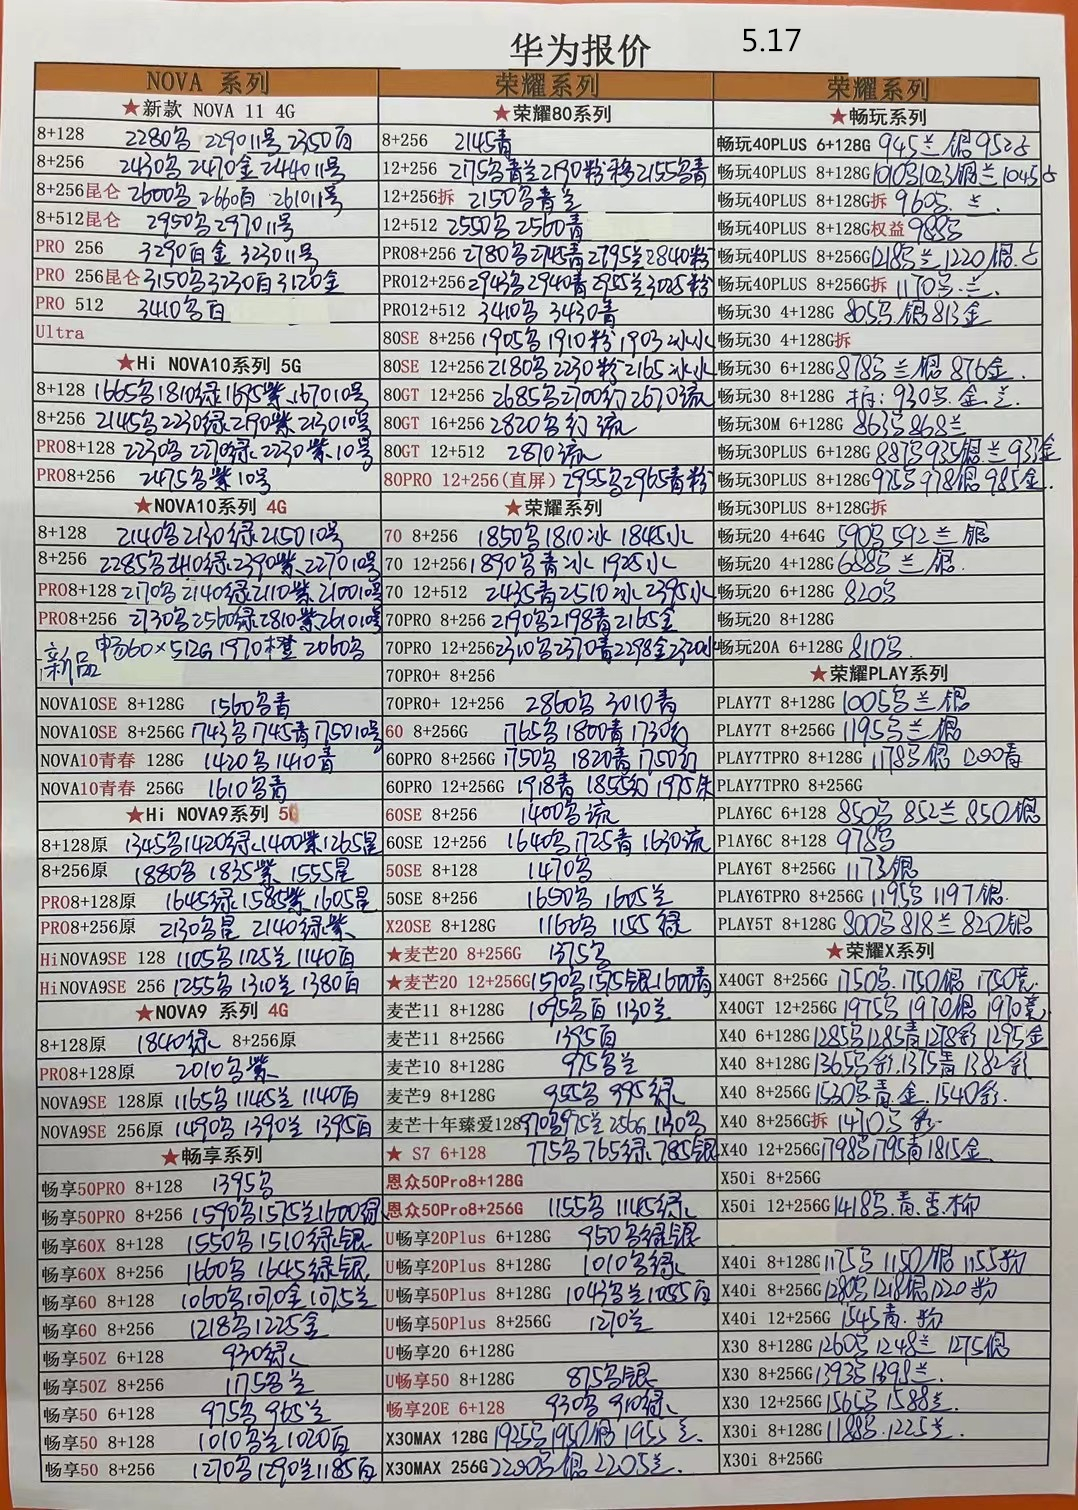 华为报价 5.17
NOVA 系列
★新款 NOVA 11 4G
8+128 2280乌 2290 11号 2350百
8+256 2430乌 2470金 2440 11号
8+256昆仑 2600乌 2660百 2610 11号
8+512昆仑 2950乌 2970 11号
PRO 256 3290百金 3230 11号
PRO 256昆仑 3150乌 3230百 3120金
PRO 512 3410乌百
Ultra
★Hi NOVA10系列 5G
8+128 1665乌 1810绿 1695紫 1670 10号
8+256 2145乌 2230绿 2190紫 2130 10号
PRO8+128 2230乌 2270绿 2230紫 10号
PRO8+256 2475乌紫 10号
★NOVA10系列 4G
8+128 2140乌 2130绿 2150 10号
8+256 2285乌 2410绿 2390紫 2270 10号
PRO8+128 2170乌 2140绿 2110紫 2100 10号
PRO8+256 2730乌 2560绿 2810紫 2610 10号
新品 畅60×512G 1970橙 2060乌
NOVA10SE 8+128G 1560乌青
NOVA10SE 8+256G 1743乌 1745青 1750 10号
NOVA10青春 128G 1420乌 1410青
NOVA10青春 256G 1610乌青
★Hi NOVA9系列 5G
8+128原 1345乌 1420绿 1400紫 1265星
8+256原 1880乌 1835紫 1555星
PRO8+128原 1645绿 1585紫 1605星
PRO8+256原 2130乌星 2140绿紫
HiNOVA9SE 128 1105乌 1125兰 1140百
HiNOVA9SE 256 1255乌 1310兰 1380百
★NOVA9 系列 4G
8+128原 1840绿 8+256原
PRO8+128原 2010乌紫
NOVA9SE 128原 1165乌 1145兰 1140百
NOVA9SE 256原 1490乌 1390兰 1395百
★畅享系列
畅享50PRO 8+128 1395乌
畅享50PRO 8+256 1590乌 1575兰 1600绿
畅享60X 8+128 1550乌 1510绿银
畅享60X 8+256 1660乌 1645绿银
畅享60 8+128 1060乌 1070金 1075兰
畅享60 8+256 1218乌 1225金
畅享50Z 6+128 930绿
畅享50Z 8+256 1175乌兰
畅享50 6+128 975乌 965兰
畅享50 8+128 1010乌兰 1020百
畅享50 8+256 1270乌 1290兰 1185百
荣耀系列
★荣耀80系列
8+256 2145青
12+256 2175乌青兰 2190粉 2155乌青
12+256拆 2150乌青兰
12+512 2550乌 2560青
PRO8+256 2780乌 2745青 2795兰 2840粉
PRO12+256 2943乌 2940青 2955兰 3025粉
PRO12+512 3410乌 3430青
80SE 8+256 1905乌 1910粉 1903冰水
80SE 12+256 2180乌 2230粉 2165冰水
80GT 12+256 2685乌 2700幻 2670流
80GT 16+256 2820乌幻流
80GT 12+512 2870流
80PRO 12+256(直屏) 2955乌 2965青粉
★荣耀系列
70 8+256 1850乌 1810冰 1845水
70 12+256 1890乌青冰 1925水
70 12+512 2435青 2510冰 2395水
70PRO 8+256 2190乌 2198青 2165金
70PRO 12+256 2310乌 2370青 2298金 2320水
70PRO+ 8+256
70PRO+ 12+256 2860乌 3010青
60 8+256G 1765乌 1800青 1730幻
60PRO 8+256G 1750乌 1820青 1750幻
60PRO 12+256G 1918青 1855幻 1975朱
60SE 8+256 1400乌流
60SE 12+256 1640乌 1725青 1630流
50SE 8+128 1470乌
50SE 8+256 1650乌 1605兰
X20SE 8+128G 1160乌 1155绿
★麦芒20 8+256G 1375乌
★麦芒20 12+256G 1570乌 1575银 1600青
麦芒11 8+128G 1095乌百 1130兰
麦芒11 8+256G 1395百
麦芒10 8+128G 975乌兰
麦芒9 8+128G 955乌 995绿
麦芒十年臻爱128 970乌 975兰 256G 1130乌
★ S7 6+128 775乌 765绿 785银
恩众50Pro8+128G
恩众50Pro8+256G 1155乌 1145绿
U畅享20Plus 6+128G 950乌绿银
U畅享20Plus 8+128G 1010乌绿
U畅享50Plus 8+128G 1043乌兰 1055百
U畅享50Plus 8+256G 1270兰
U畅享20 6+128G
U畅享50 8+128G 875乌银
畅享20E 6+128 930乌 910绿
X30MAX 128G 1925乌 1950银 1955兰
X30MAX 256G 2200乌银 2205兰
荣耀系列
★畅玩系列
畅玩40PLUS 6+128G 945兰银 952占
畅玩40PLUS 8+128G 1010乌 1023银兰 1045占
畅玩40PLUS 8+128G拆 960乌.兰
畅玩40PLUS 8+128G权益 988乌
畅玩40PLUS 8+256G 1218乌兰 1220银.占
畅玩40PLUS 8+256G拆 1170乌.兰
畅玩30 4+128G 805乌.银 813金
畅玩30 4+128G拆
畅玩30 6+128G 878乌兰银 876金
畅玩30 8+128G 拆:930乌.金.兰
畅玩30M 6+128G 863乌 868兰
畅玩30PLUS 6+128G 887乌 935银兰 933金
畅玩30PLUS 8+128G 975乌 978银 985金
畅玩30PLUS 8+128G拆
畅玩20 4+64G 590乌 592兰银
畅玩20 4+128G 688乌兰银
畅玩20 6+128G 820乌
畅玩20 8+128G
畅玩20A 6+128G 810乌
★荣耀PLAY系列
PLAY7T 8+128G 1005乌兰银
PLAY7T 8+256G 1195乌兰银
PLAY7TPRO 8+128G 1178乌银 1200青
PLAY7TPRO 8+256G
PLAY6C 6+128 850乌 852兰 850银
PlAY6C 8+128 978乌
PLAY6T 8+256G 1173银
PLAY6TPRO 8+256G 1195乌 1197银
PLAY5T 8+128G 800乌 818兰 820银
★荣耀X系列
X40GT 8+256G 1750乌.1750银 1750竞
X40GT 12+256G 1975乌 1970银 1970竞
X40 6+128G 1285乌 1285青 1278彩 1295金
X40 8+128G 1365乌彩.1375青 1382彩
X40 8+256G 1530乌青.金.1540彩
X40 8+256G拆 1470乌彩
X40 12+256G 1798乌 1795青 1815金
X50i 8+256G
X50i 12+256G 1418乌.青.杏柳
X40i 8+128G 1175乌 1150银 1155粉
X40i 8+256G 1280乌 1218银 1220粉
X40i 12+256G 1545青.粉
X30 8+128G 1260乌 1248兰 1275银
X30 8+256G 1393乌 1398兰
X30 12+256G 1565乌 1588兰
X30i 8+128G 1188乌.1225兰
X30i 8+256G